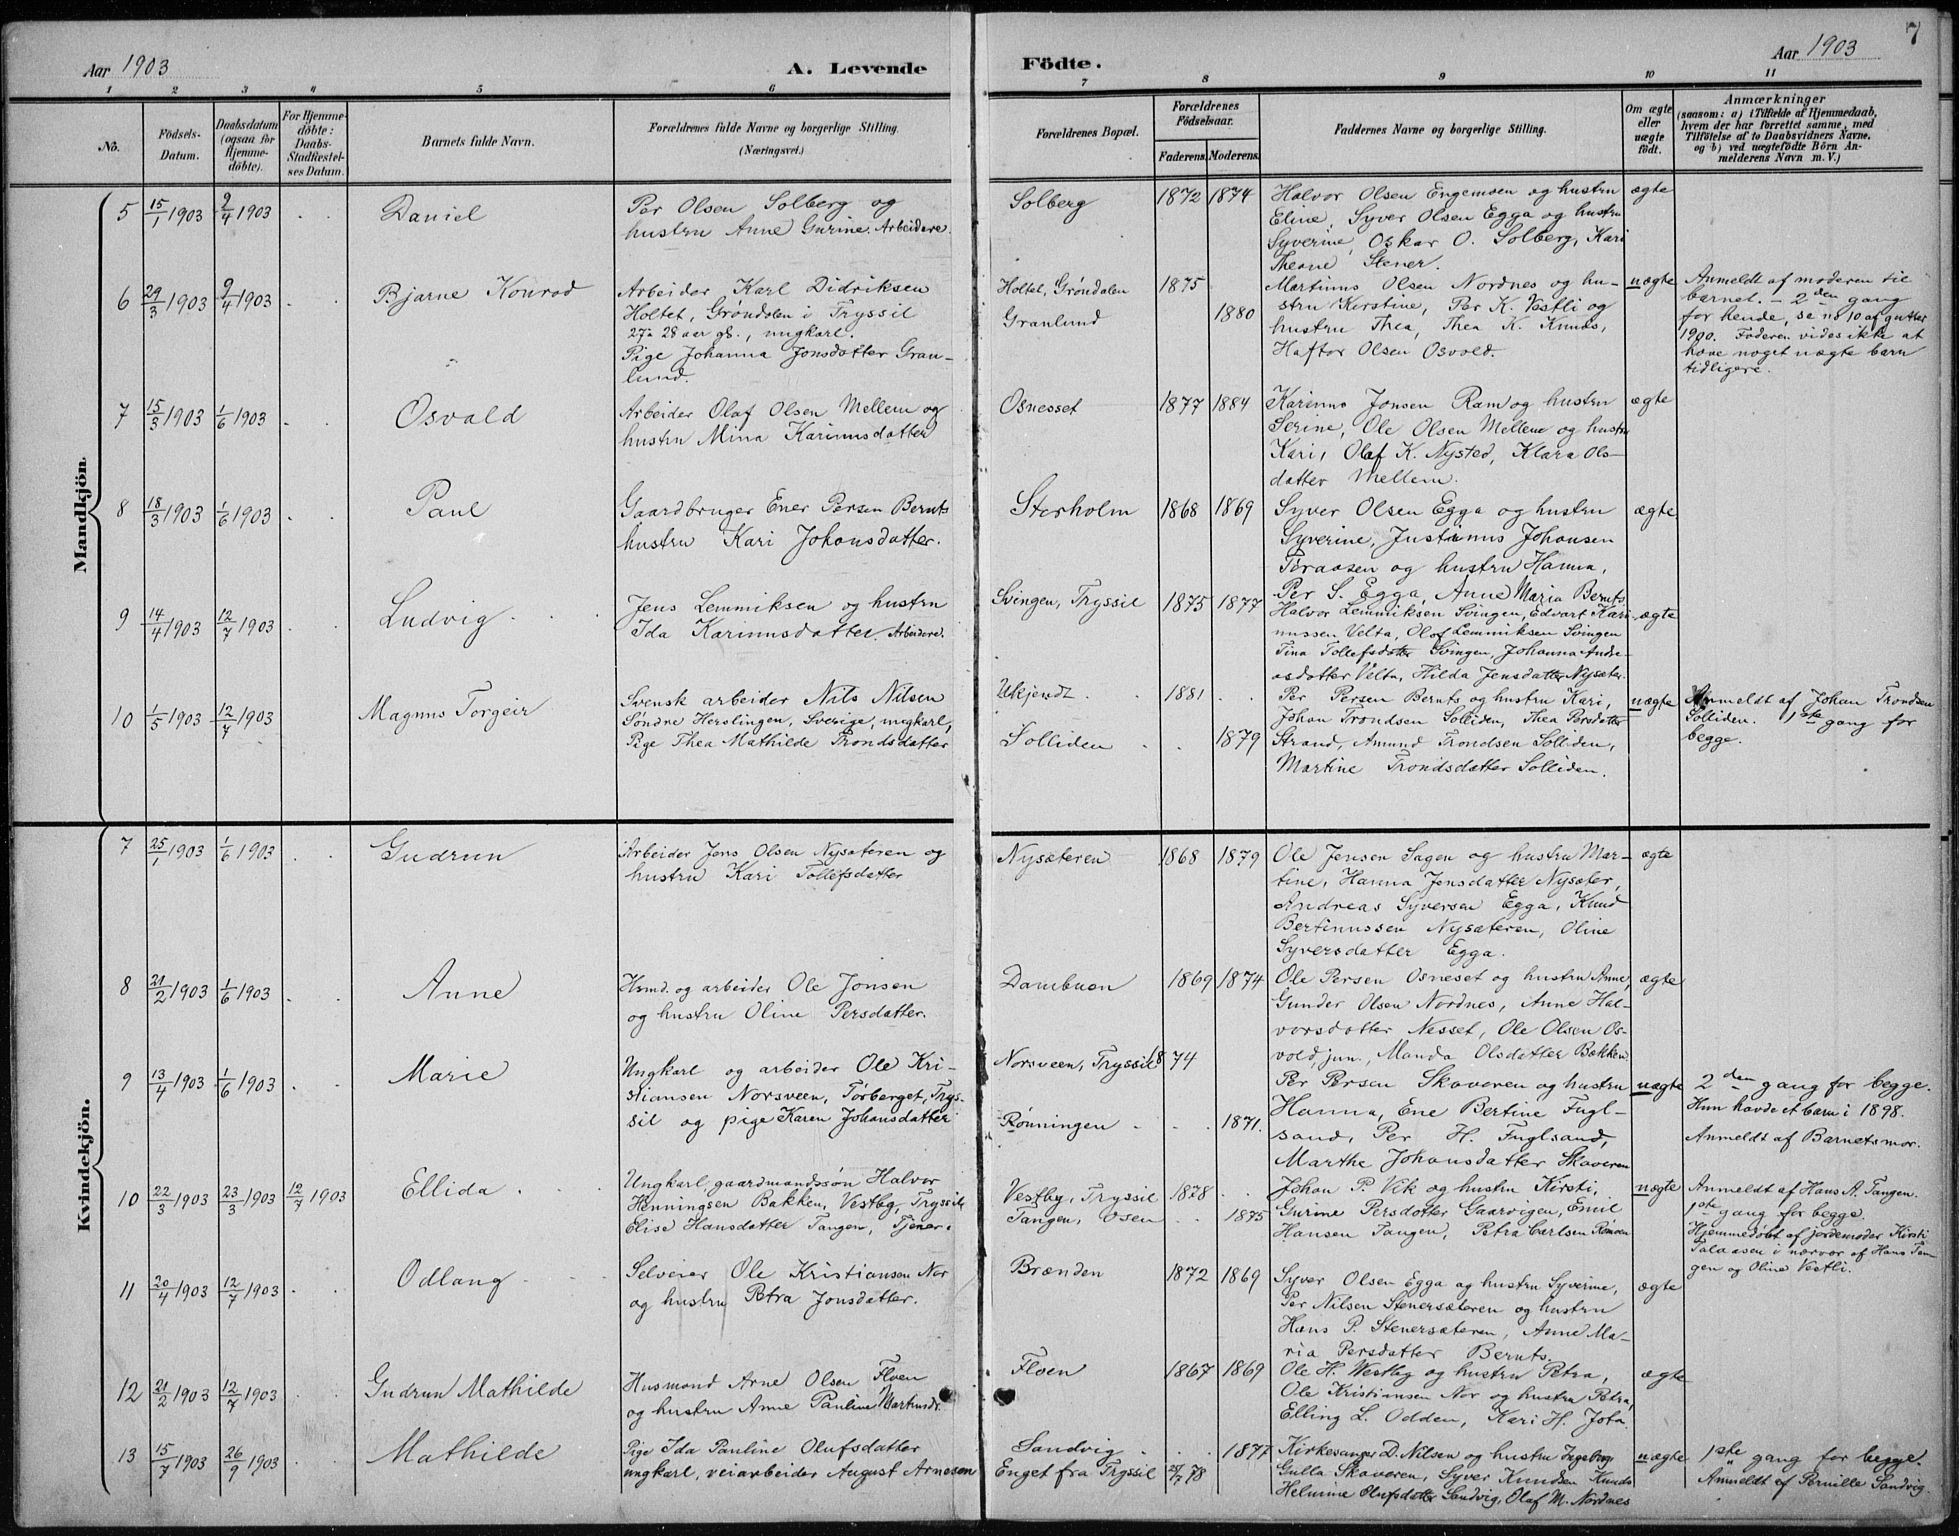 7
Aar 1903
A. Levende
Födte.
Aar 1903
1 2 3 4 5 6 7 8 9 10 11
No.
Födsels-
Datum.
Daabsdatum
(ogsaa for
Hjemme-
döbte).
For Hjemme-
döbte:
Daabs-
Stadfæstel-
ses Datum.
Barnets fulde Navn.
Forældrenes fulde Navne og borgerlige Stilling.
(Næringsvei.)
Forældrenes Bopæl.
Forældrenes
Födselsaar.
Faderens. Moderens.
Faddernes Navne og borgerlige Stilling.
Om ægte
eller
uægte
födt.
Anmærkninger
(saasom: a) i Tilfælde af Hjemmedaab,
hvem der har forrettet samme, med
Tilföielse af to Daabsvidners Navne,
og b) ved uægtefödte Börn An-
melderens Navn m. V.)
Mandkjön.
5 15/1 1903 9/4 1903 Daniel
Per Olsen Solberg og
hustru Anne Gurine. Arbeidere.
Solberg 1872 1874
Halvor Olsen Engemoen og hustru
Eline, Syver Olsen Egga og hustru
Syverine, Oskar O. Solberg, Kari
Theone Stener.
ægte
6 29/3 1903 9/4 1903 Bjarne Konrad
Arbeider Karl Didriksen
Holtet, Grøndalen i Tryssil
27-28 aar gl., ungkarl.
Pige Johanna Jonsdatter Gran-
lund.
Holtet, Grøndalen 1875
Granlund 1880
Martinus Olsen Nordnes og hu-
stru Kerstine, Per K. Vestli og
hustru Thea, Thea K. Knuds,
Haftor Olsen Osvold.
uægte
Anmeldt af moderen til
barnet. – 2den gang
for hende, se no 10 af gutter
1900. Faderen vides ikke at
have noget uægte barn
tidligere.
7 15/3 1903 1/6 1903 Osvald
Arbeider Olaf Olsen Mellem og
hustru Mina Karinusdatter
Osnesset 1877 1884
Karinus Jonsen Ram og hustru
Serine, Ole Olsen Mellem og hustru
Kari, Olaf K. Nysted, Klara Ols-
datter Mellem.
ægte
8 18/3 1903 1/6 1903 Paul
Gaardbruger Ener Persen Bernts
hustru Kari Johansdatter.
Storholm 1868 1869
Syver Olsen Egga og hustru
Syverine, Justinus Johansen
Toraasen og hustru Hanna,
Per S. Egga, Anne Maria Bernts
ægte
9 14/4 1903 12/7 1903 Ludvig
Jens Lemmiksen og hustru
Ida Karinusdatter. Arbeidere.
Svingen, Tryssil 1875 1877
Halvor Lemmiksen Svingen, Edvart Kari-
nussen Velta, Olof Lemmiksen Svingen
Tina Tollefsdatter Svingen, Johanna Andre-
asdatter Velta, Hilda Jensdatter Nysæter.
ægte
10 1/5 1903 12/7 1903 Magnus Torgeir
Svensk arbeider Nils Nilsen
Søndre Herslingen, Sverige, ungkarl,
Pige Thea Mathilde Trondsdatter
Ukjendt 1881
Solliden 1879
Per Persen Bernts og hustru Kari,
Johan Trondsen Solliden, Thea Persdatter
Strand, Amund Trondsen Solliden,
Martine Trondsdatter Solliden.
uægte
Anmeldt af Johan Trondsen
Solliden. 1ste gang for
begge.
Kvindekjön.
7 25/1 1903 1/6 1903 Gudrun
Arbeider Jens Olsen Nysæteren og
hustru Kari Tollefsdatter
Nysæteren 1868 1879
Ole Jensen Sagen og hustru Mar-
tine, Hanna Jensdatter Nysæter,
Andreas Syversen Egga, Knud
Bertinussen Nysæteren, Oline
Syversdatter Egga.
ægte
8 21/2 1903 1/6 1903 Anne
Hsmd. og arbeider Ole Jonsen
og hustru Oline Persdatter.
Dambuen 1869 1874
Ole Persen Osneset og hustru Anne,
Gunder Olsen Nordnes, Anne Hal-
vorsdatter Nesset, Ole Olsen Os-
vold, jun., Manda Olsdatter Bakken
ægte
9 13/4 1903 1/6 1903 Marie
Ungkarl og arbeider Ole Kri-
stiansen Norsveen, Tørberget, Trys-
sil og pige Karen Johansdatter
Norsveen, Tryssil 1874
Rønningen 1871.
Per Persen Skaveren og hustru
Hanna, Ene Bertine Fugl-
sand, Per H. Fuglsand,
Marthe Johansdatter Skaveren
uægte
2den gang for begge.
Hun havde et barn i 1898.
Anmeldt af Barnets mor.
10 22/3 1903 23/3 1903 12/7 1903 Ellida
Ungkarl, gaardmandssøn Halvor
Henningsen Bakken, Vestby, Tryssil,
Elise Hansdatter Tangen, Tjener.
Vestby, Tryssil 1878
Tangen, Osen 1875
Johan P. Vik og hustru Kirsti,
Gurine Persdatter Gaarvigen, Emil
Hansen Tangen, Petra Carlsen Rømoen
uægte
Anmeldt af Hans A. Tangen.
1ste gang for begge.
Hjemmedøbt af jordemoder Kirsti
Talaasen i nærvær af Hans Tan-
gen og Oline Vestli.
11 20/4 1903 12/7 1903 Odlaug
Selveier Ole Kristiansen Nor
og hustru Petra Jonsdatter.
Brænden 1872 1869
Syver Olsen Egga og hustru Syverine,
Per Nilsen Stenersæteren og hustru
Hans P. Stenersæteren, Anne Ma-
ria Persdatter Bernts.
ægte
12 21/2 1903 12/7 1903 Gudrun Mathilde
Husmand Arne Olsen Floen
og hustru Anne Pauline Martinsdr.
Floen 1867 1869
Ole H. Westby og hustru Petra,
Ole Kristiansen Nor og hustru Petra,
Elling L. Odden, Kari H. Jota
ægte
13 15/7 1903 26/9 1903 Mathilde
Pige Ida Pauline Olufsdatter
ungkarl, veiarbeider August Arnesen
Sandvig 1877
Enget fra Tryssil 25/2 78
Kirkesanger D. Nilsen og hustru Ingeborg
Gulla Skaveren, Syver Knudsen Knuds
Helmine Olufsdatter Sandvig, Olaf M. Nordnes
uægte
1ste gang for begge.
Anmeldt af Pernille Sandvig.